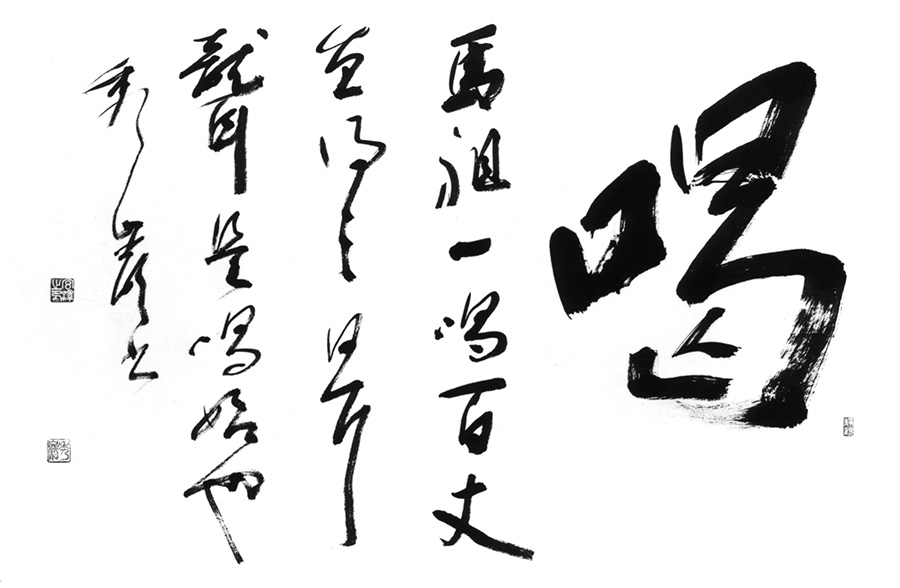 喝
馬祖一喝百丈
直得三日耳
聾是喝始也
书